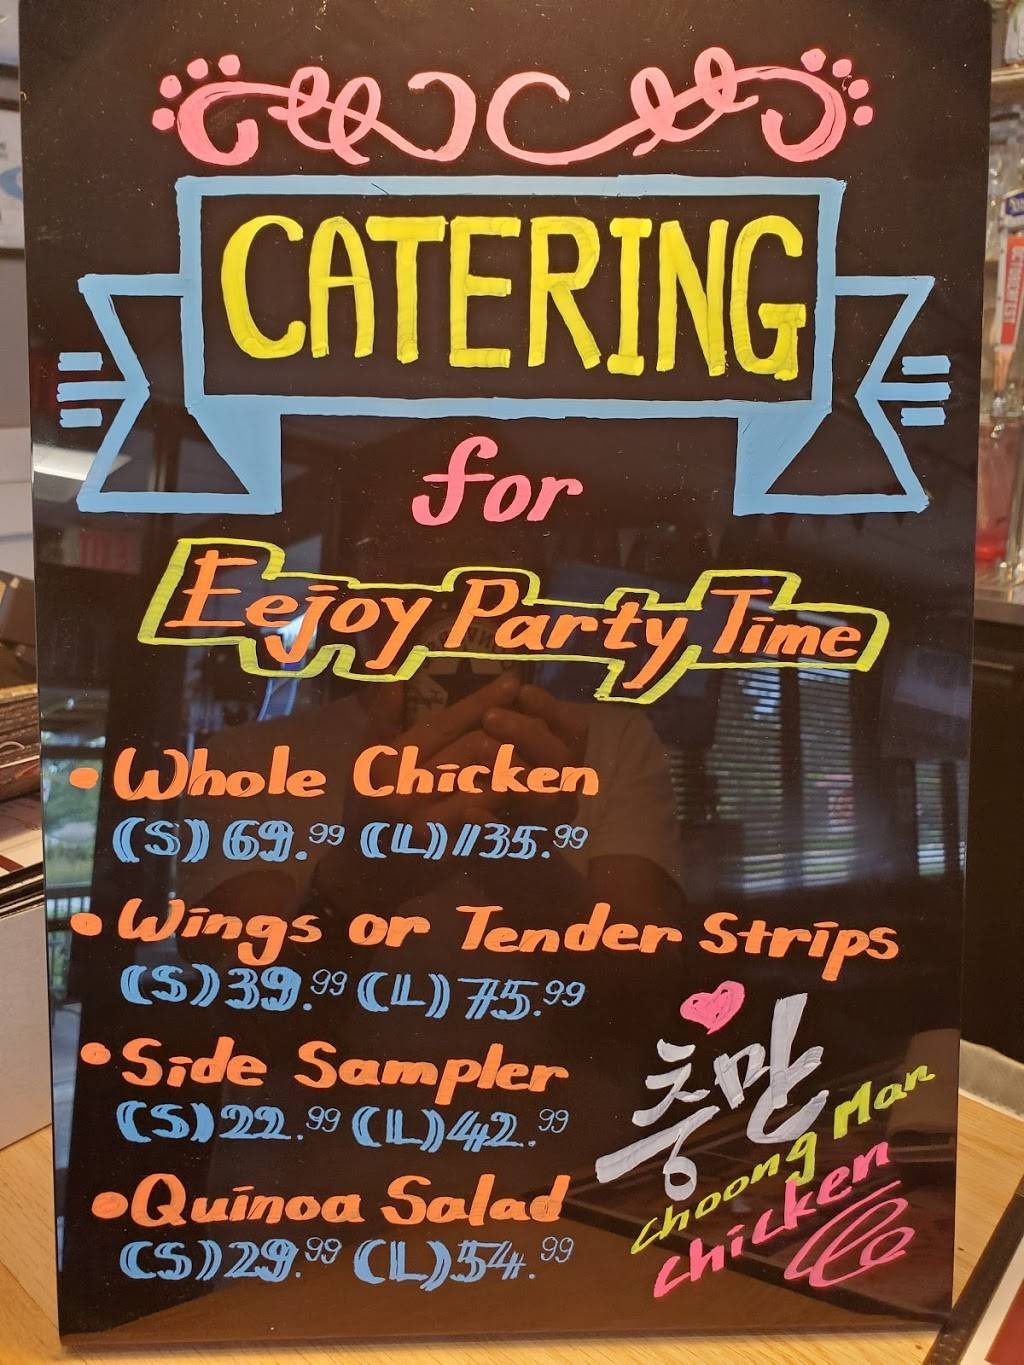 CATERING
for
Eejoy Party Time
• Whole Chicken
(S) 69.99 (L) 135.99
• Wings or Tender Strips
(S) 39.99 (L) 75.99
• Side Sampler
(S) 22.99 (L) 42.99
• Quinoa Salad
(S) 29.99 (L) 54.99
충만
Choong Man
Chicken